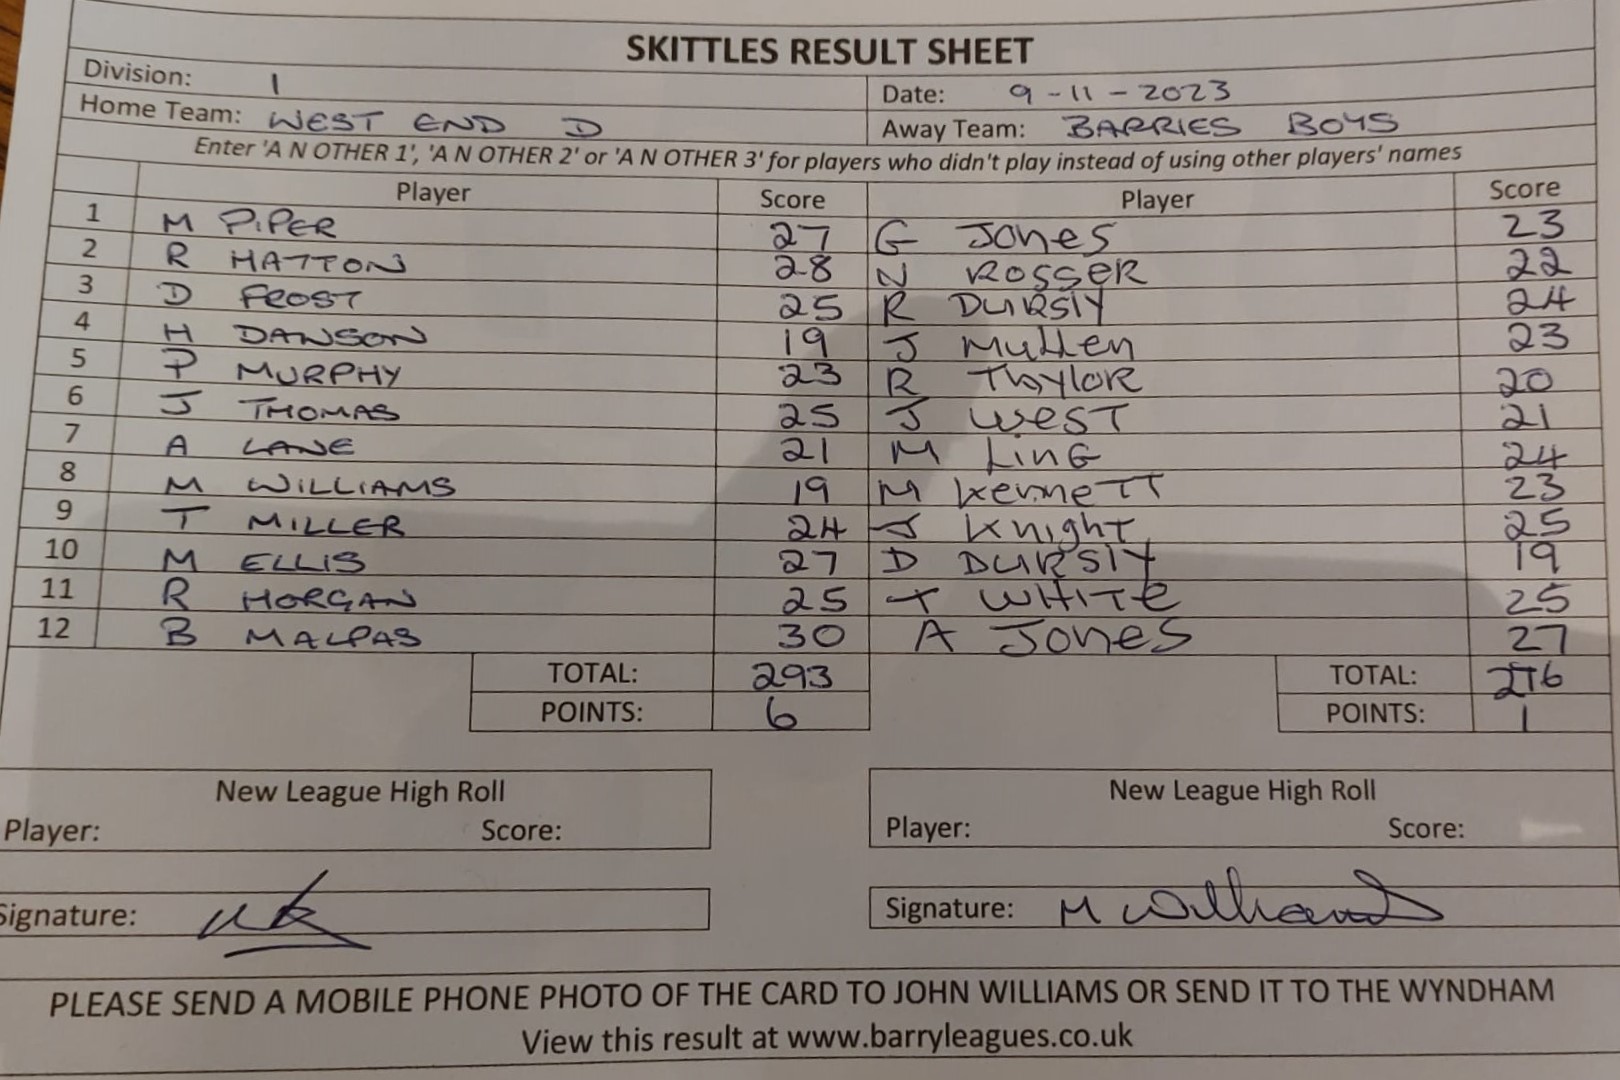 SKITTLES RESULT SHEET
Division: 1
Date: 9-11-2023
Home Team: WEST END D
Away Team: BARRIES BOYS
Enter 'A N OTHER 1', 'A N OTHER 2' or 'A N OTHER 3' for players who didn't play instead of using other players' names
Player Score Player Score
1 M PIPER 27 G Jones 23
2 R HATTON 28 N ROSSER 22
3 D FROST 25 R DURSLY 24
4 H DAWSON 19 J Mullen 23
5 P MURPHY 23 R Taylor 20
6 J THOMAS 25 J WEST 21
7 A LANE 21 M LinG 24
8 M WILLIAMS 19 M KenneTT 23
9 T MILLER 24 J Knight 25
10 M ELLIS 27 D DURSLY 19
11 R MORGAN 25 T WHITE 25
12 B MALPAS 30 A Jones 27
TOTAL: 293 TOTAL: 276
POINTS: 6 POINTS: 1
New League High Roll
Player: Score:
New League High Roll
Player: Score:
Signature:
Signature: M Williams
PLEASE SEND A MOBILE PHONE PHOTO OF THE CARD TO JOHN WILLIAMS OR SEND IT TO THE WYNDHAM
View this result at www.barryleagues.co.uk